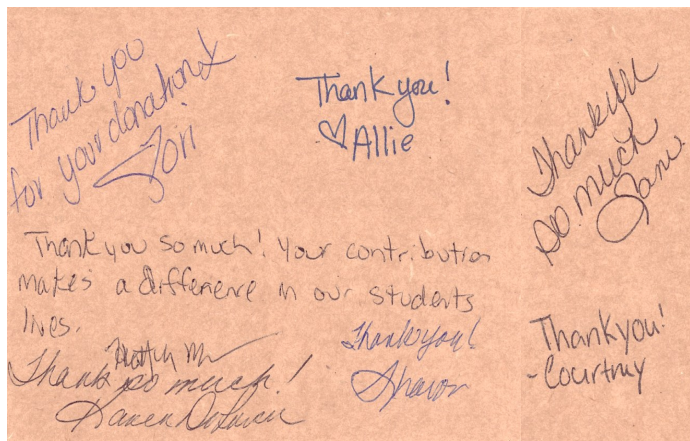 Thank you
for your donation!
Tori
Thank you!
♡ Allie
Thank you
so much
Thank you so much! Your contribution
makes a difference in our students
lives.
Thank you!
Sharon
Thank you!
-Courtney
Thank so much!
Karen